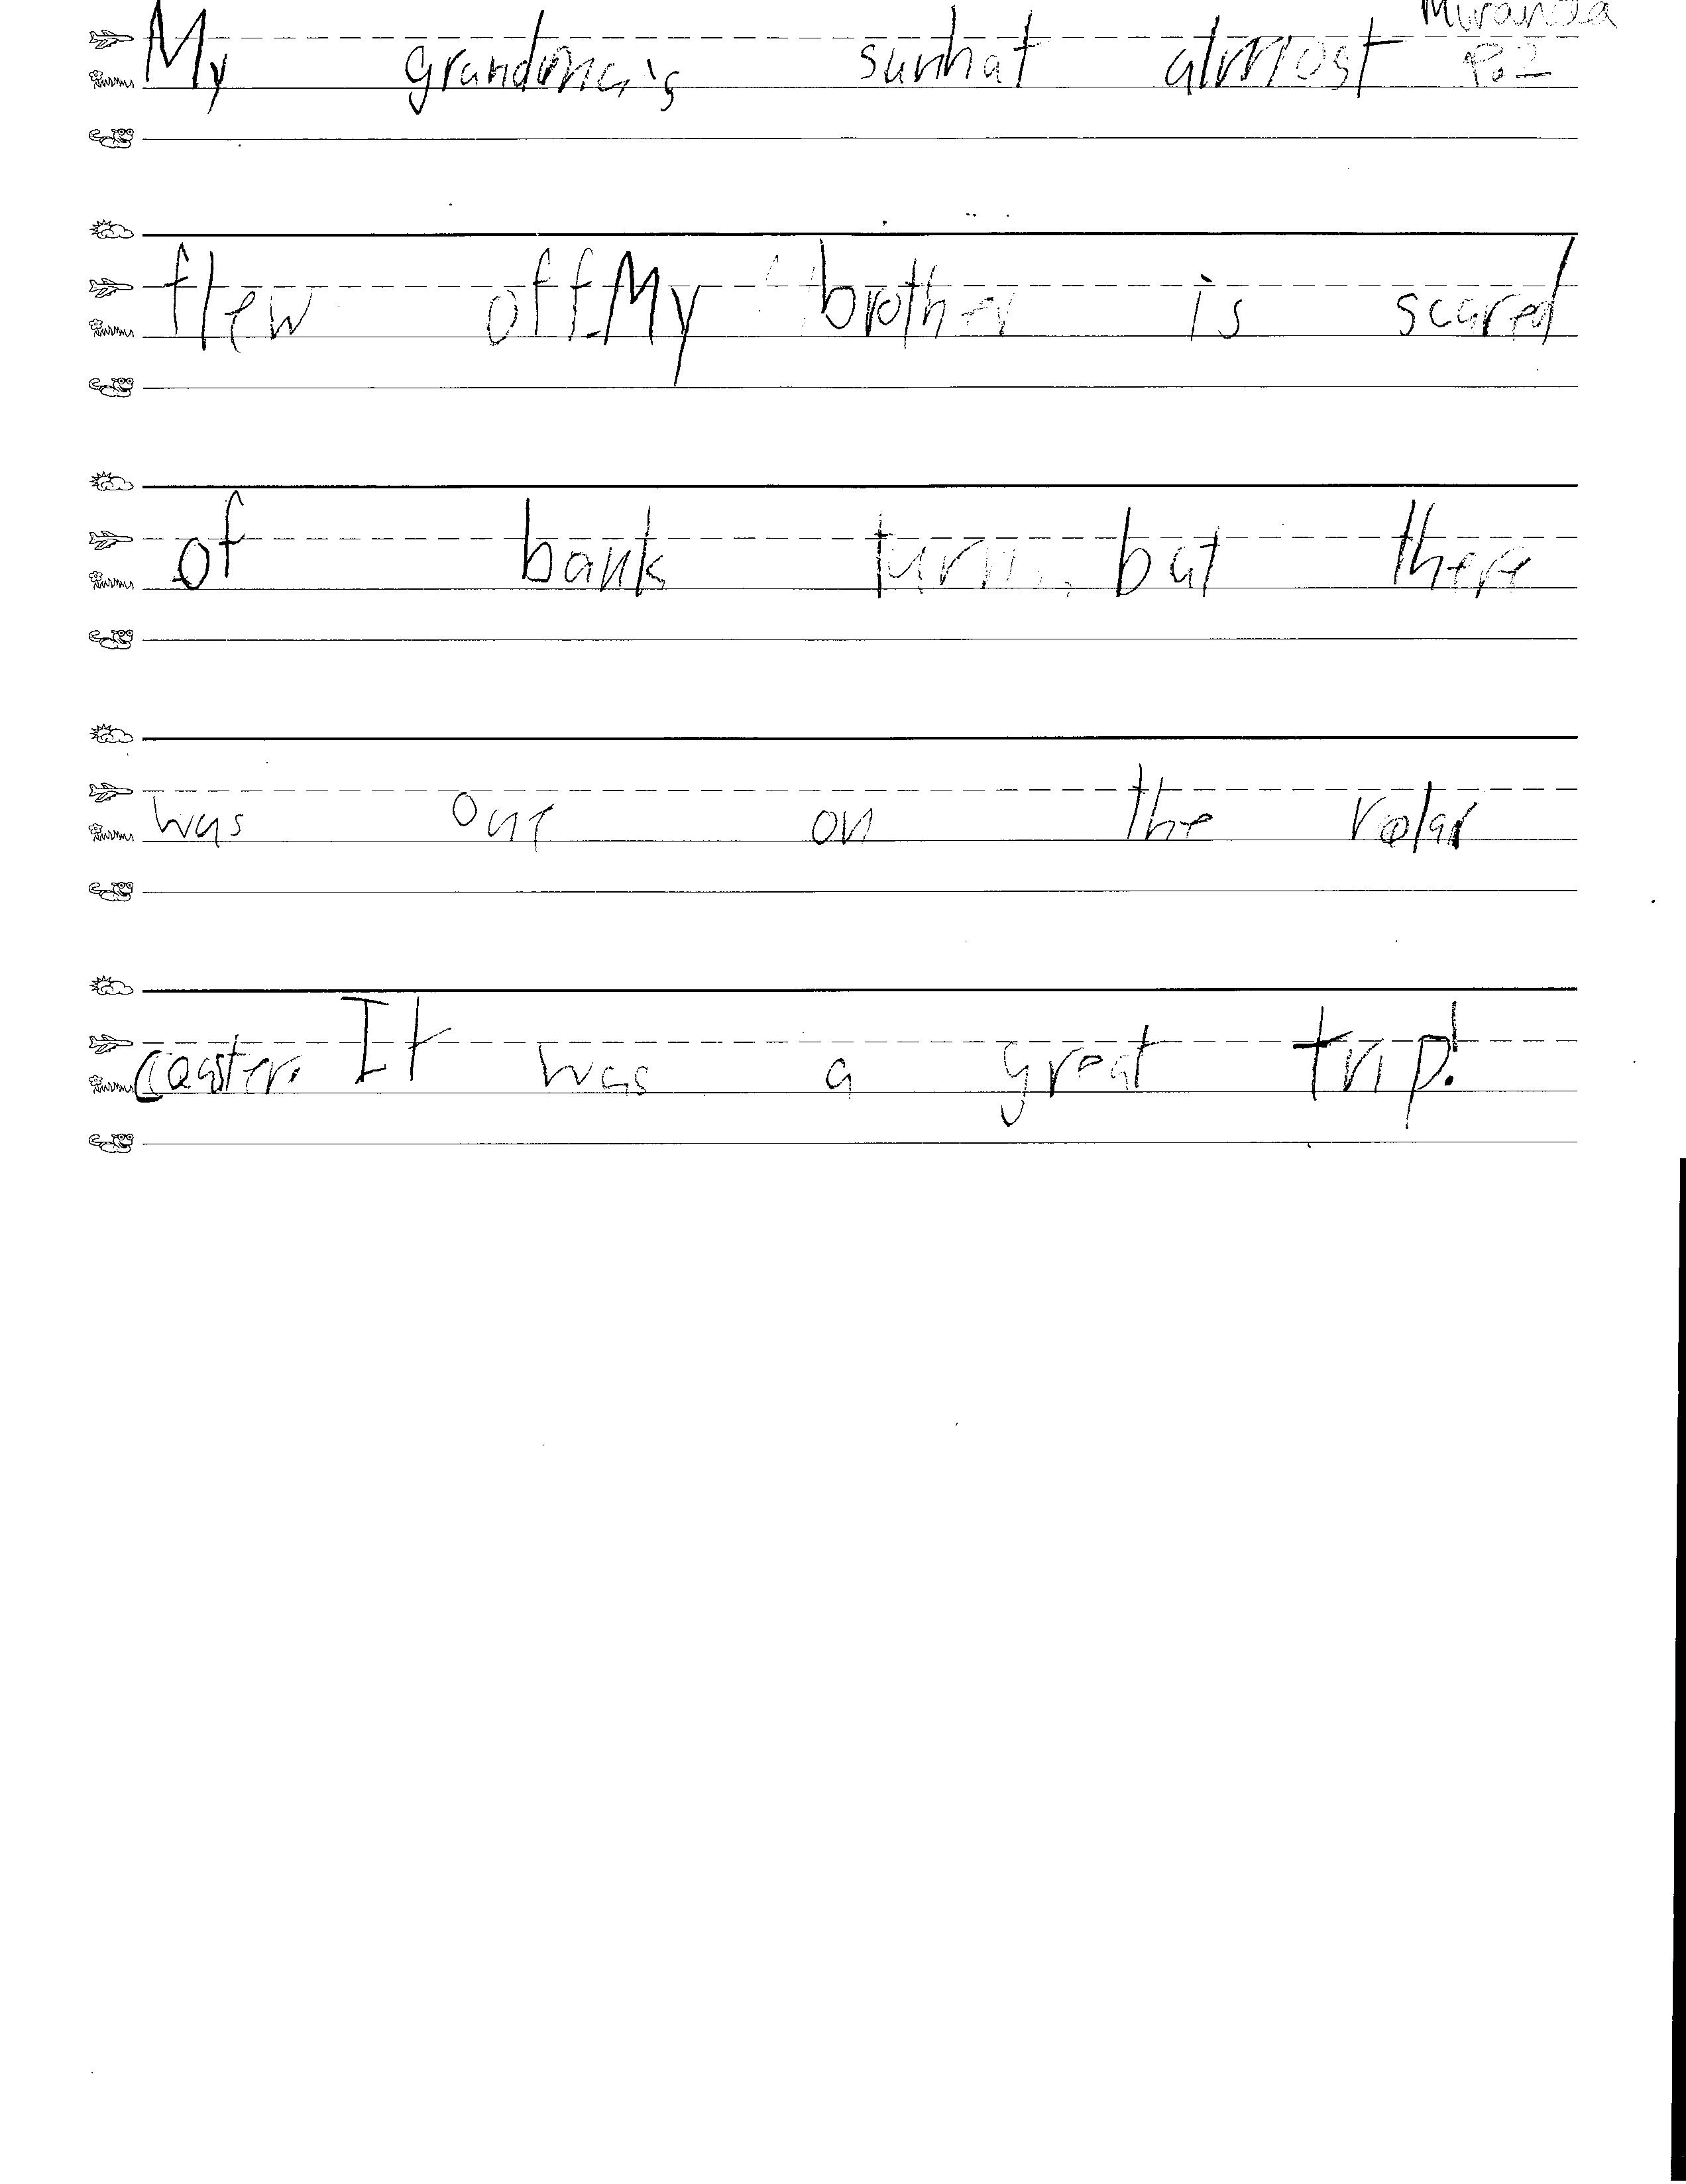 Miranda
My grandma's sunhat almost P.2
flew off. My brother is scared
of bank turns, but there
was one on the rolar
coaster. It was a great trip!